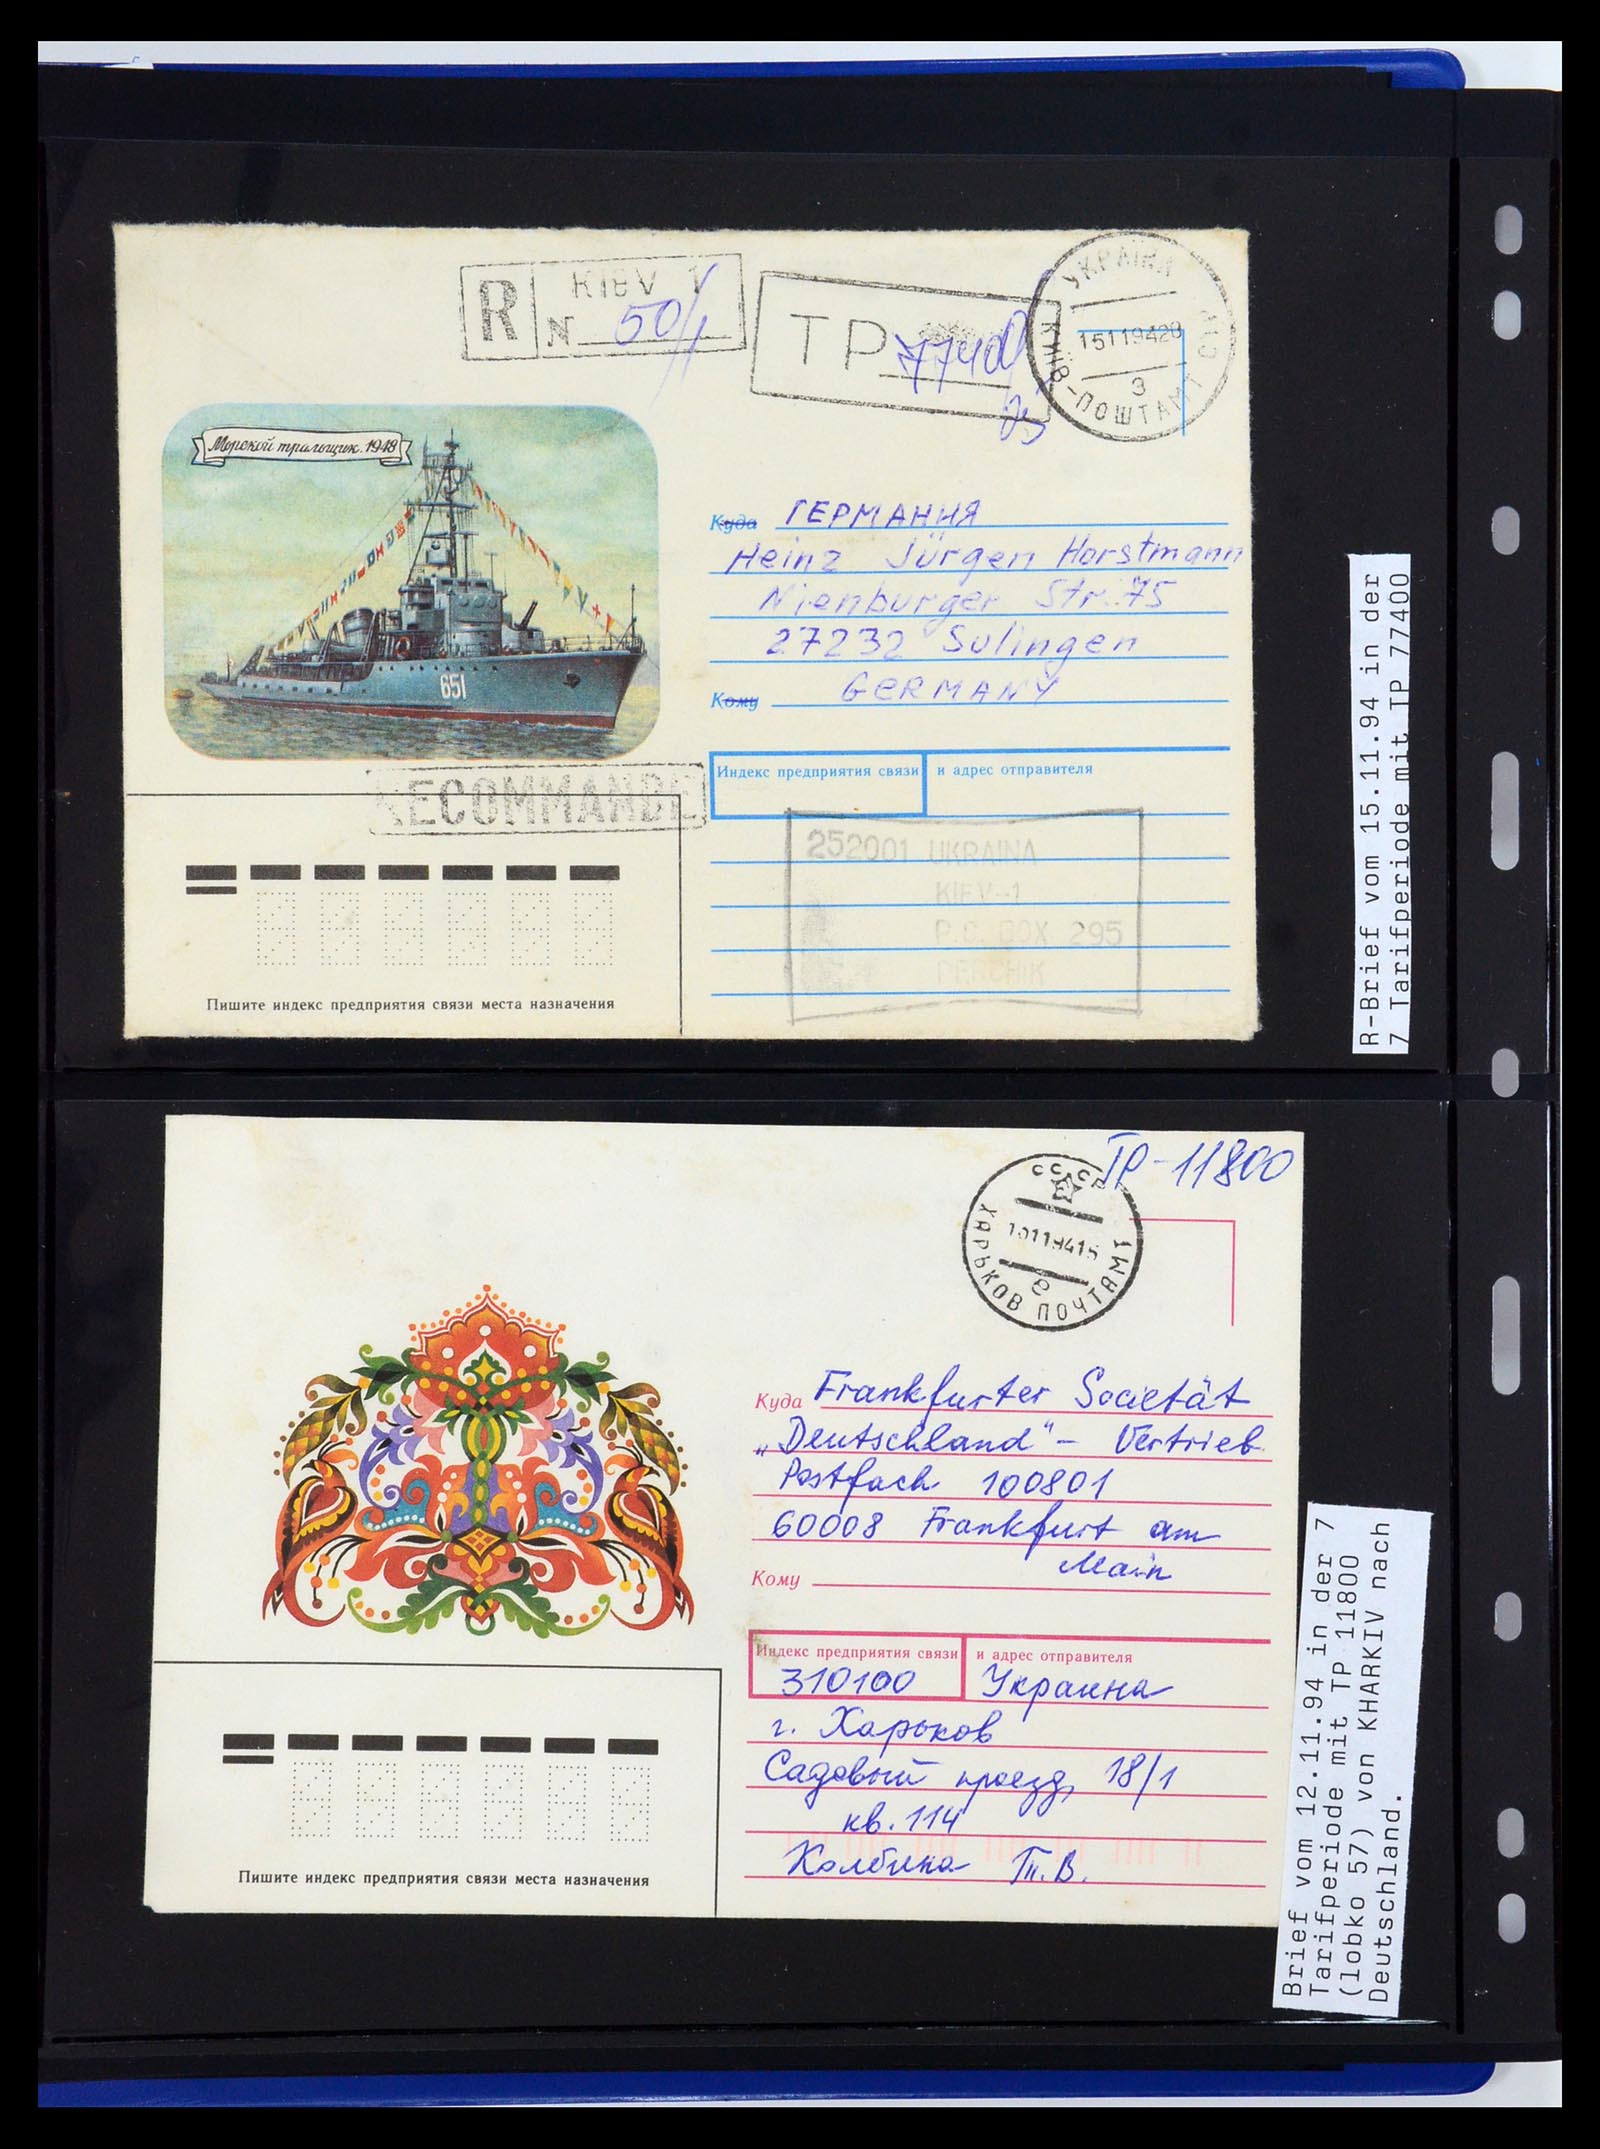 R
KIEV 1
N 50/1
TP 77400
УКРАЇНА
15119420
3
КИЇВ-ПОШТАМТ
Морской тральщик. 1948
651
Куда ГЕРМАНИЯ
Heinz Jürgen Horstmann
Nienburger Str. 75
27232 Sulingen
Кому GERMANY
RECOMMANDE
Индекс предприятия связи и адрес отправителя
252001 UKRAINA
KIEV-1
P.O. BOX 295
Пишите индекс предприятия связи места назначения
R-Brief vom 15.11.94 in der
7 Tarifperiode mit TP 77400
TP-11800
СССР
ХАРЬКОВ ПОЧТАМТ
Куда Frankfurter Societät
„Deutschland“ - Vertrieb
Postfach 100801
60008 Frankfurt am
Main
Кому
Индекс предприятия связи и адрес отправителя
310100 Украина
г. Харьков
Садовый проезд, 18/1
кв. 114
Колбина Т.В.
Пишите индекс предприятия связи места назначения
Brief vom 12.11.94 in der 7
Tarifperiode mit TP 11800
(lobko 57) von KHARKIV nach
Deutschland.